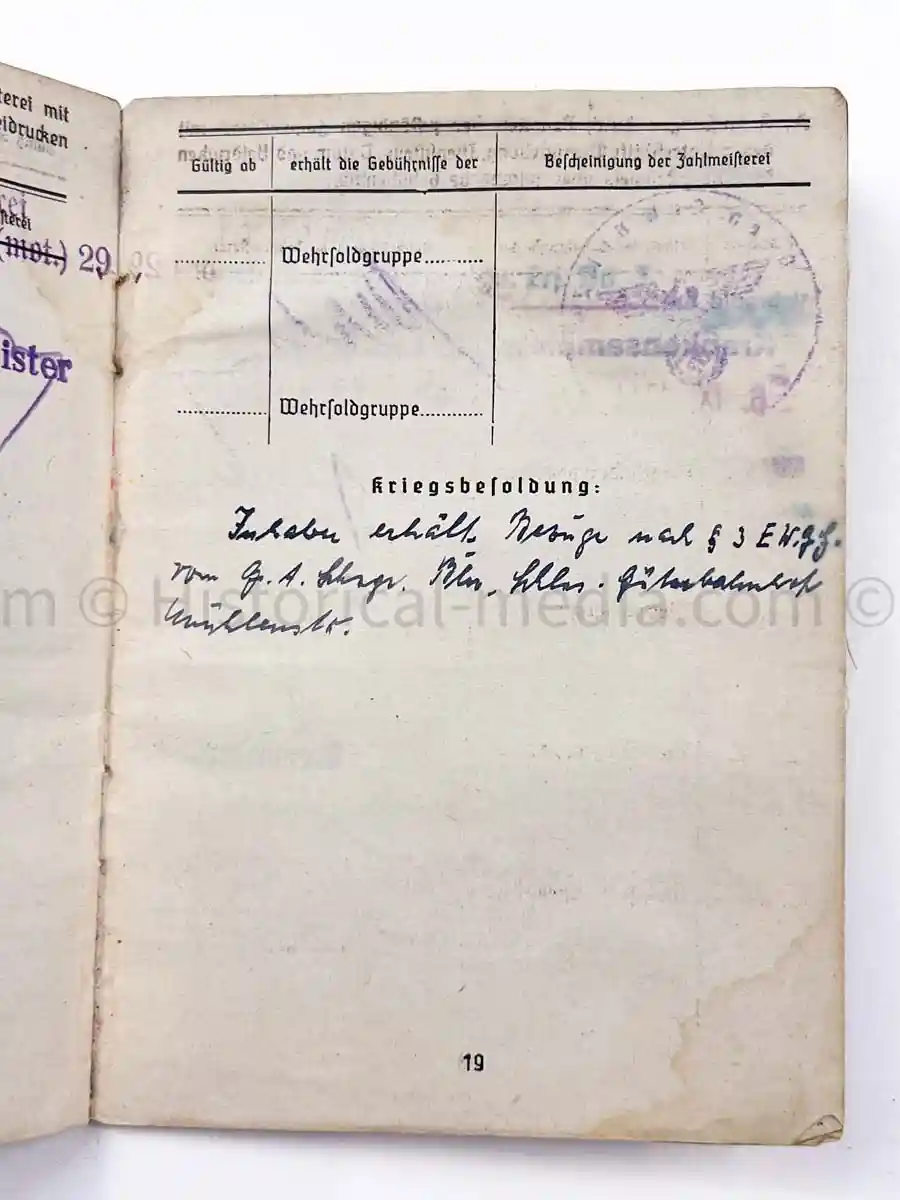 terei mit
eidrucken
sterei
(mot.) 29
ister
Gültig ab
erhält die Gebührnisse der
Bescheinigung der Zahlmeisterei
Wehrsoldgruppe
Wehrsoldgruppe
Kriegsbesoldung:
Inhaber erhält Bezüge nach § 3 E W.G.G.
vom G. A. Bln. Güterbahnhof
Mühlenstr.
om © Historical-media.com ©
19